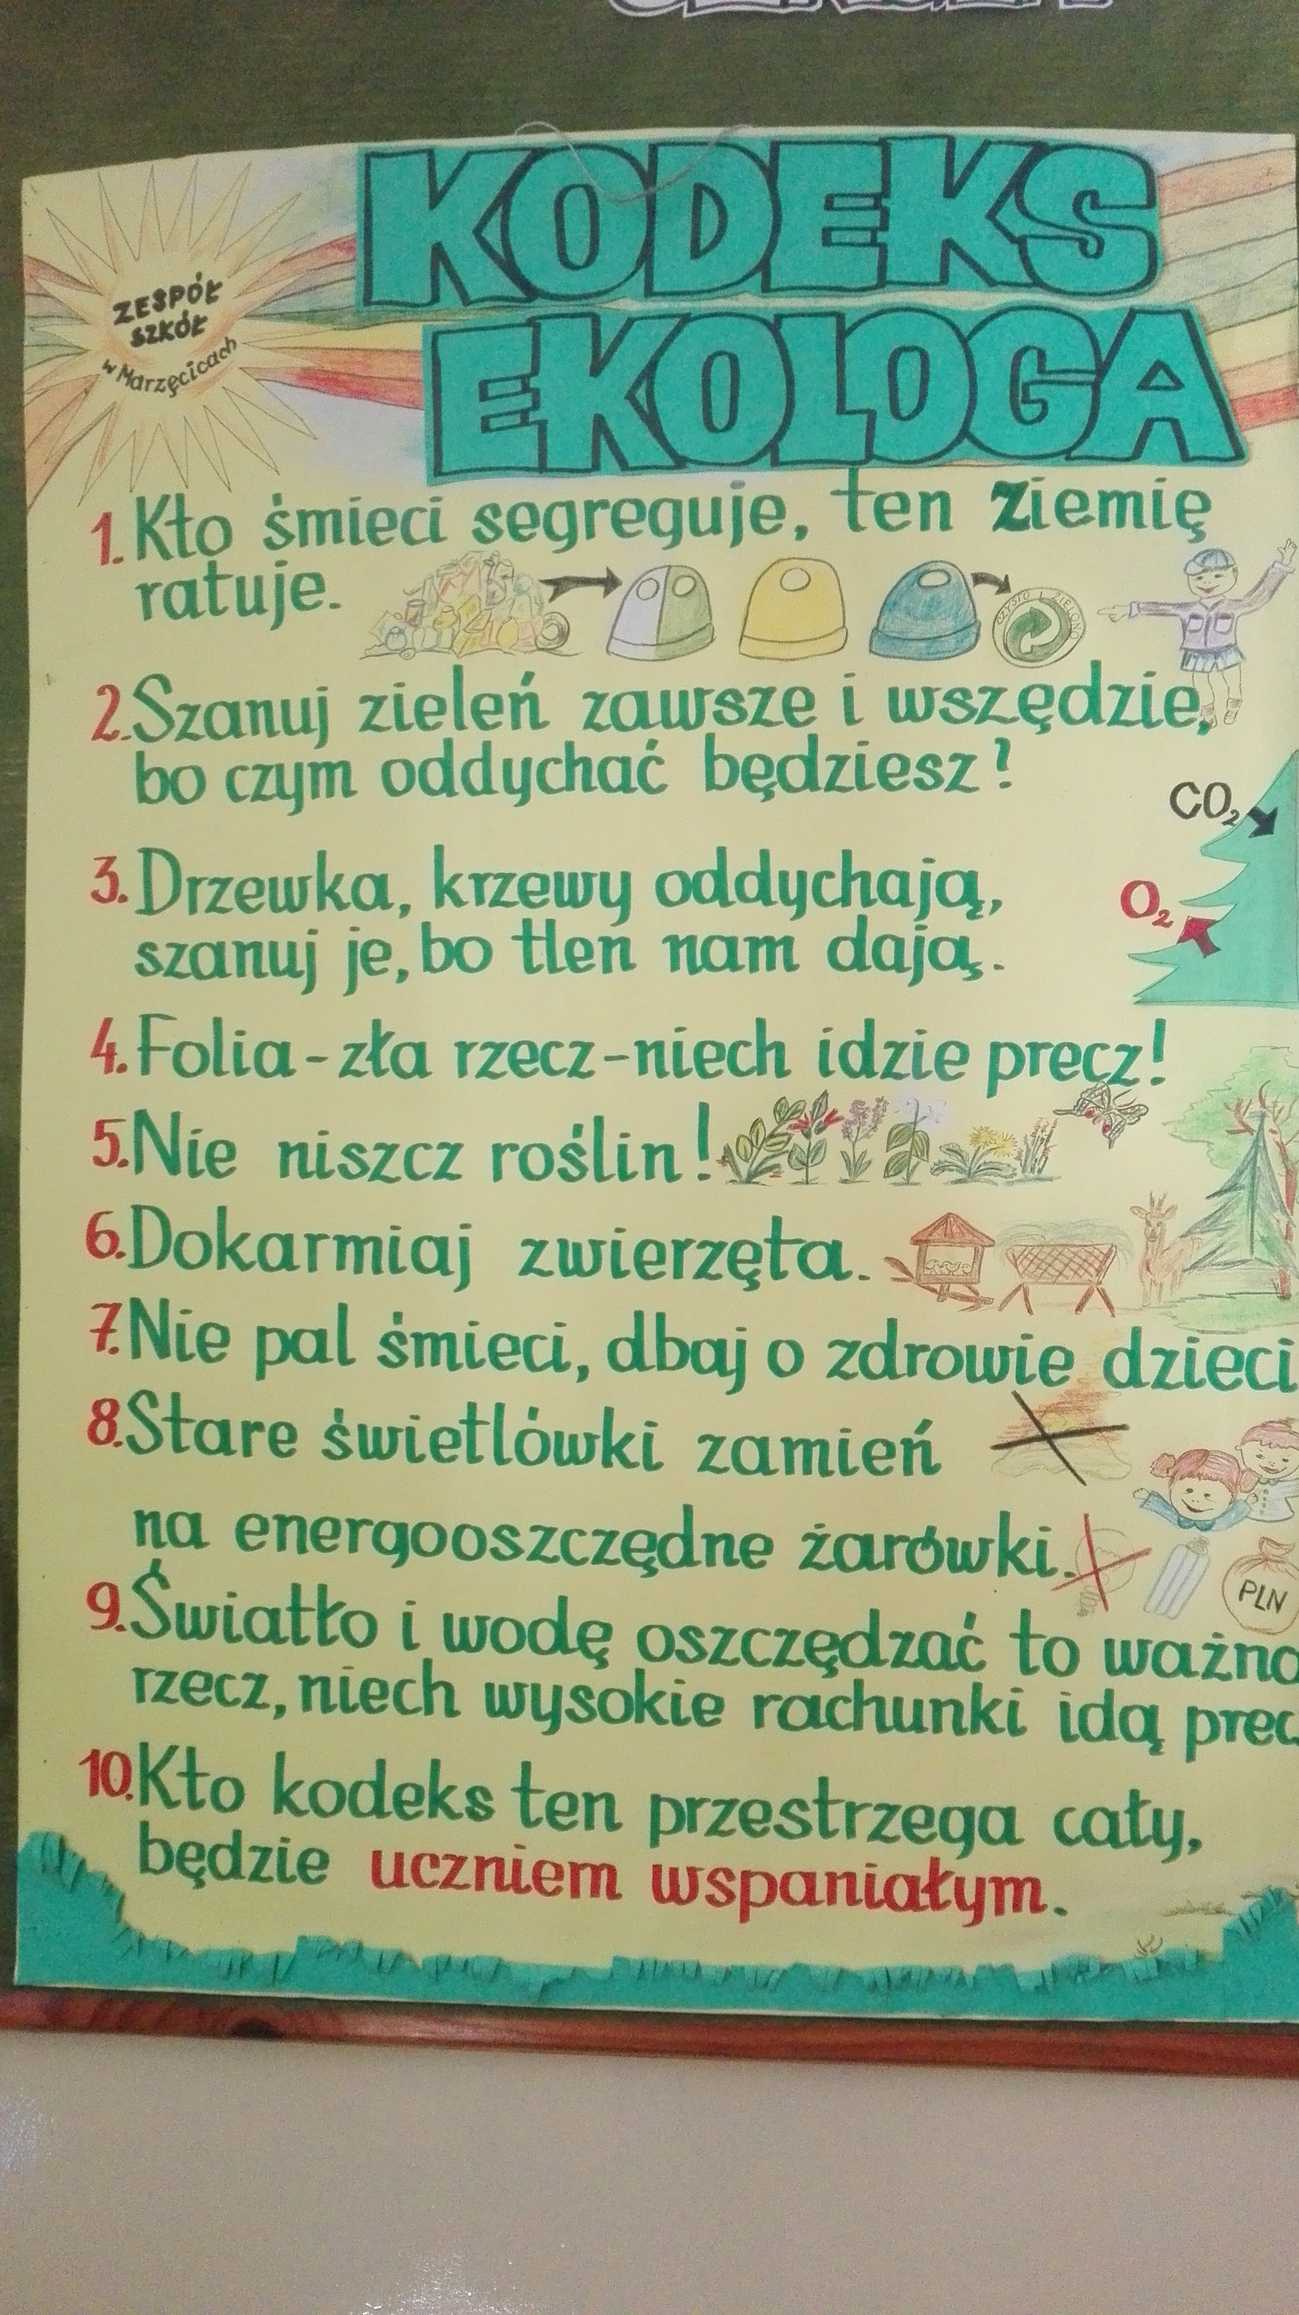 KODEKS
EKOLOGA
ZESPÓŁ
SZKÓŁ
w Marzęcicach
1. Kto śmieci segreguje, ten Ziemię
ratuje.
CZYSTO I ZIELONO
2. Szanuj zieleń zawsze i wszędzie,
bo czym oddychać będziesz?
CO2
3. Drzewka, krzewy oddychają,
O2
szanuj je, bo tlen nam dają.
4. Folia - zła rzecz - niech idzie precz!
5. Nie niszcz roślin!
6. Dokarmiaj zwierzęta.
7. Nie pal śmieci, dbaj o zdrowie dzieci
8. Stare świetlówki zamień
na energooszczędne żarówki.
PLN
9. Światło i wodę oszczędzać to ważna
rzecz, niech wysokie rachunki idą prec
10. Kto kodeks ten przestrzega cały,
będzie uczniem wspaniałym.